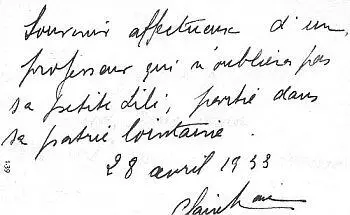 Souvenir affectueux d'un
professeur qui n'oubliera pas
sa petite Lili, partie dans
sa patrie lointaine.
28 avril 1933